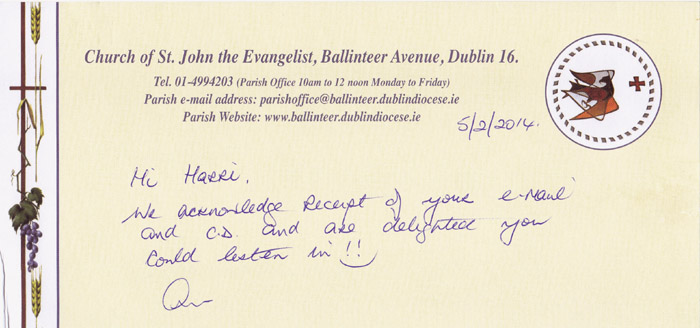 Church of St. John the Evangelist, Ballinteer Avenue, Dublin 16.
Tel. 01-4994203 (Parish Office 10am to 12 noon Monday to Friday)
Parish e-mail address: parishoffice@ballinteer.dublindiocese.ie
Parish Website: www.ballinteer.dublindiocese.ie
5/2/2014.
Hi Harri,
We acknowledge Receipt of your e-mail
and C.D. and are delighted you
could listen in!!